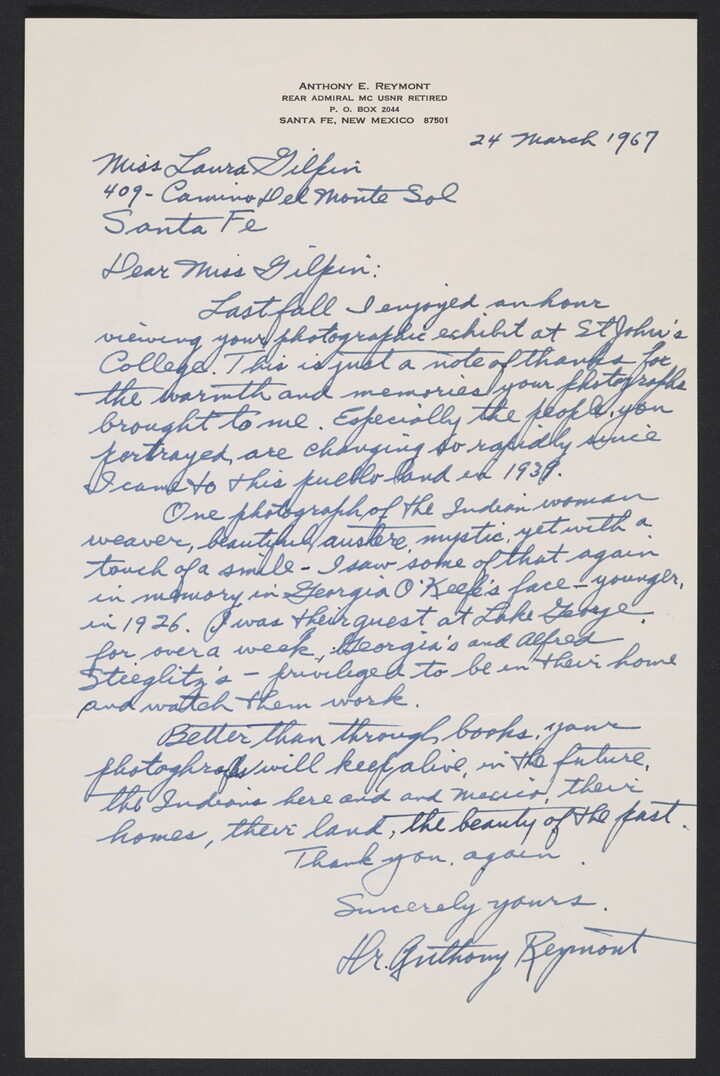 ANTHONY E. REYMONT
REAR ADMIRAL MC USNR RETIRED
P. O. BOX 2044
SANTA FE, NEW MEXICO 87501
24 March 1967
Miss Laura Gilpin
409 - Camino Del Monte Sol
Santa Fe
Dear Miss Gilpin:
Last fall I enjoyed an hour
viewing your photographic exhibit at St John's
College. This is just a note of thanks for
the warmth and memories your photographs
brought to me. Especially the people, you
portrayed, are changing so rapidly since
I came to this pueblo land in 1939.
One photograph, of the Indian woman
weaver, beautiful, austere, mystic, yet with a
touch of a smile - I saw some of that again
in memory in Georgia O'Keefe's face - younger,
in 1926. I was their guest at Lake George
for over a week, Georgia's and Alfred
Stieglitz's - privileged to be in their home
and watch them work.
Better than through books, your
photoghrafs will keep alive, in the future,
the Indians here and and Mexico, their
homes, their land, the beauty of the past.
Thank you, again.
Sincerely yours.
Dr. Anthony Reymont